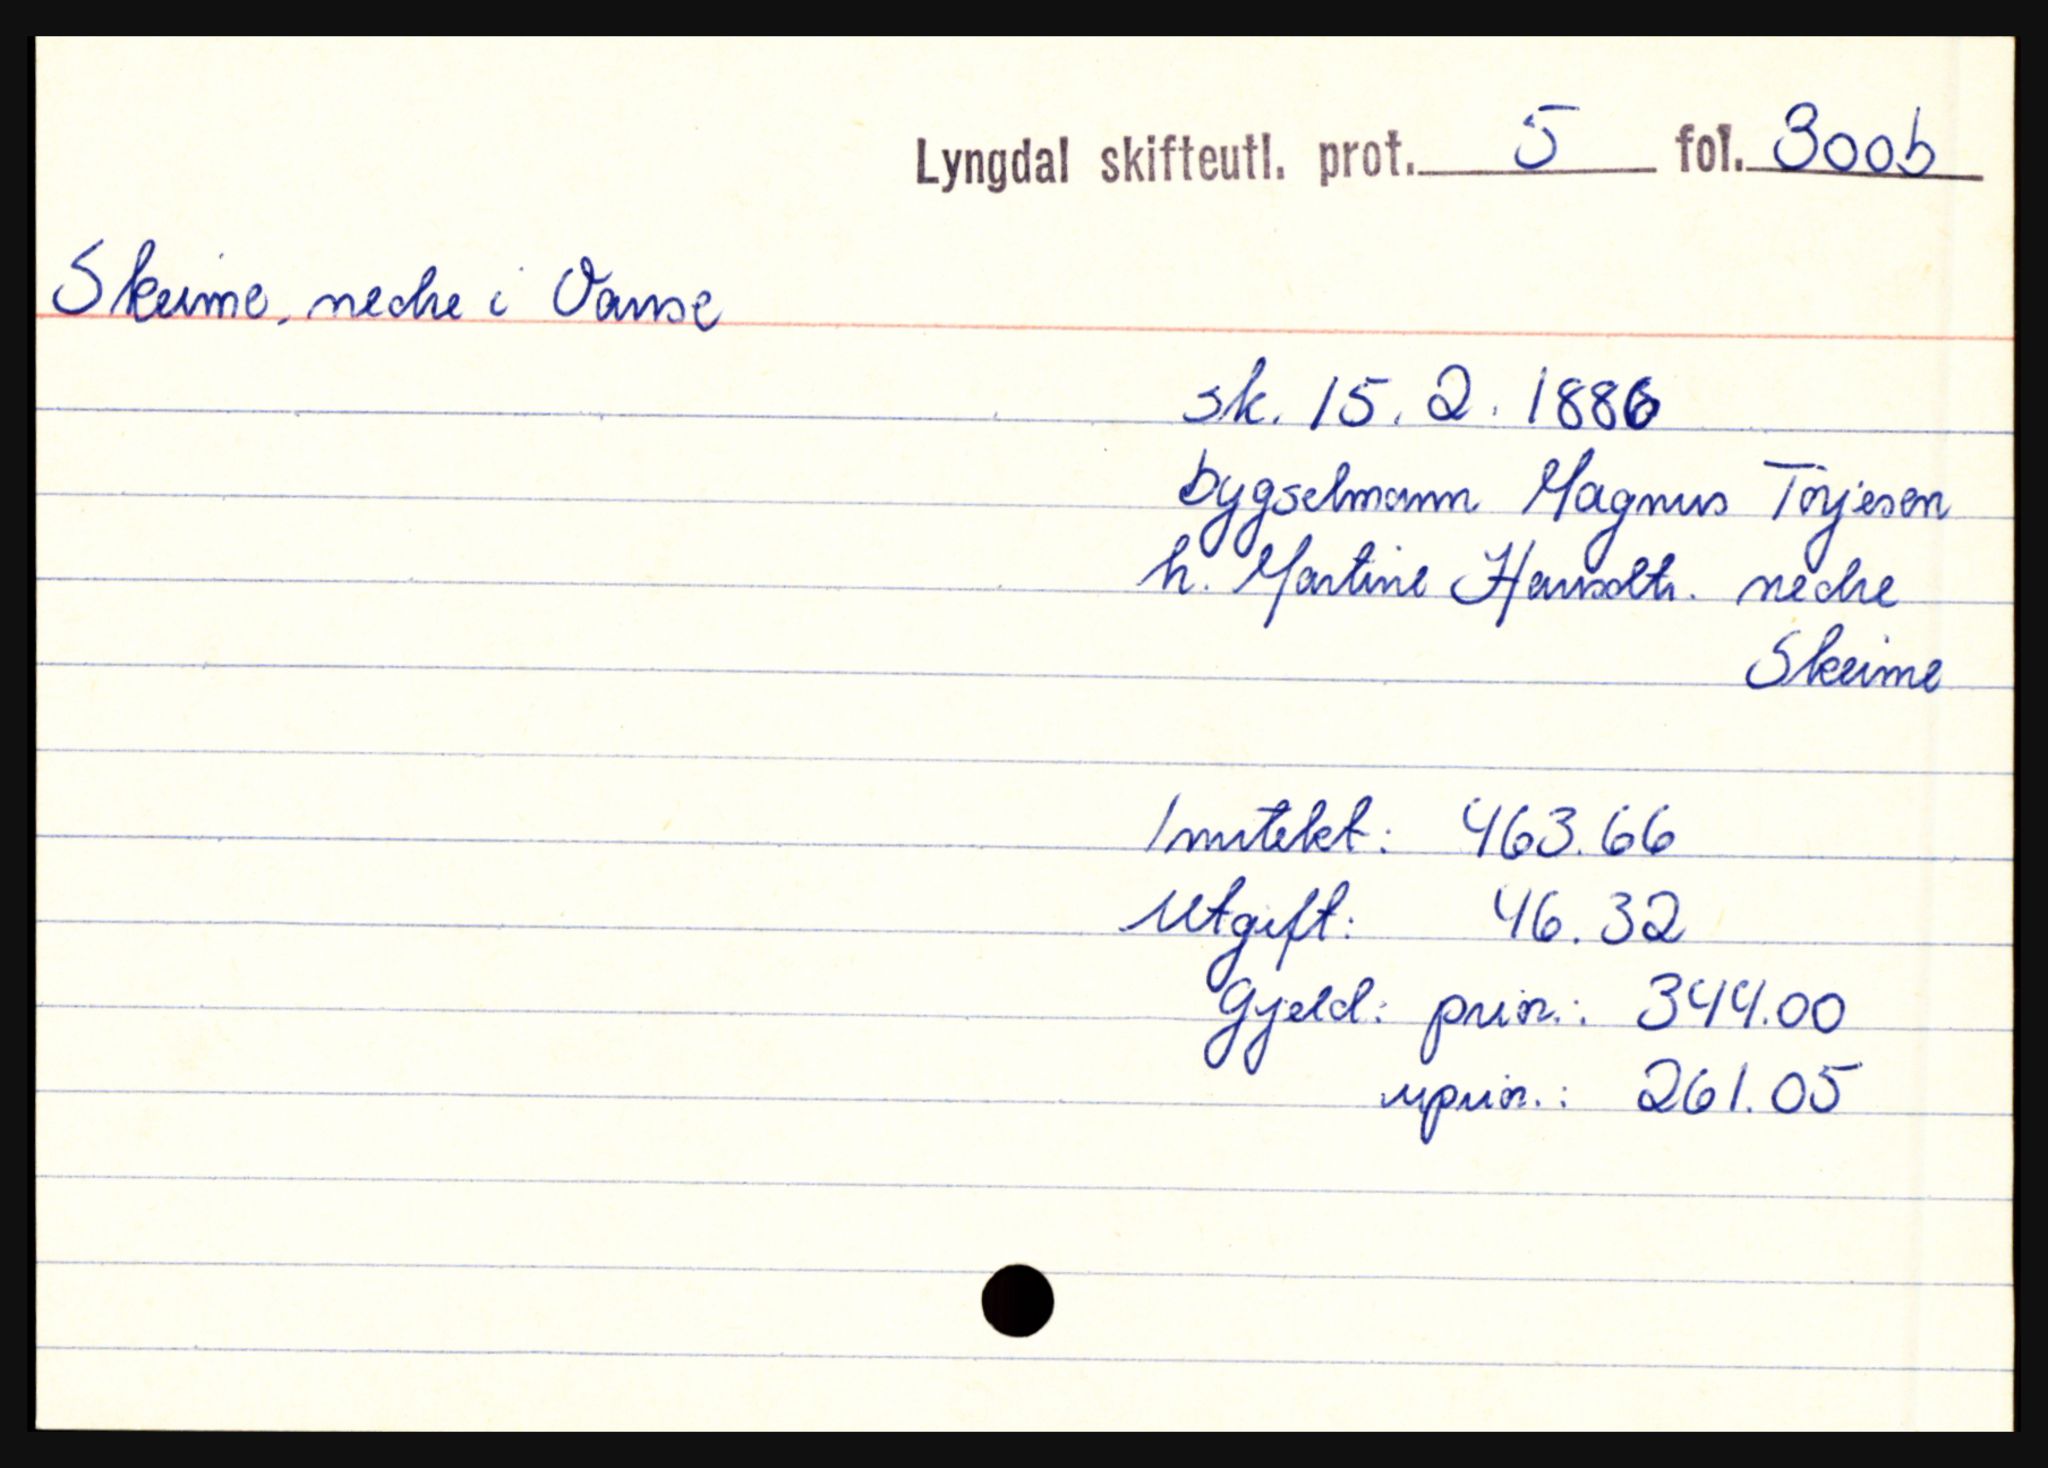 Lyngdal skifteutl. prot. 5 fol. 300b
Skeime, nedre i Vanse
sk. 15. 2. 1886
bygselmann Magnus Torjesen
h. Martine Hansdtr. nedre
Skeime
Inntekt: 463.66
Utgift: 46.32
Gjeld: prior.: 344.00
uprior.: 261.05